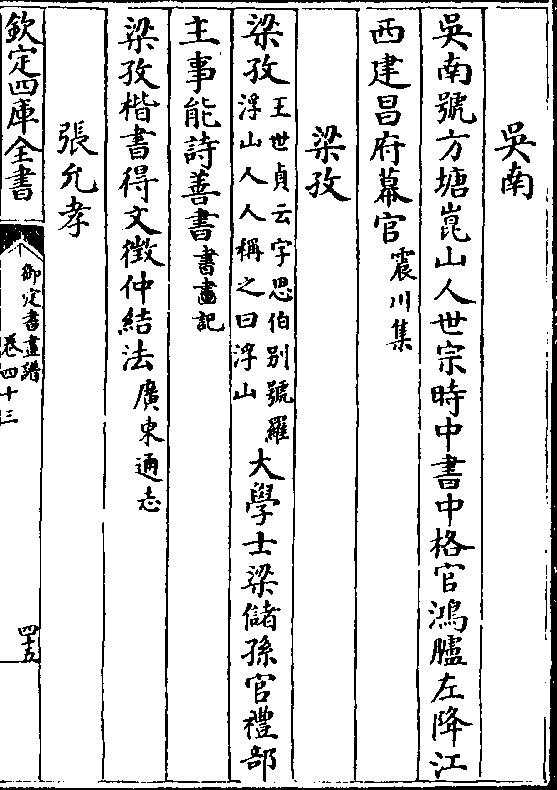 吳南
吳南號方塘崑山人世宗時中書中格官鴻臚左降江
西建昌府幕官震川集
梁孜
梁孜王世貞云字思伯别號羅
浮山人人稱之曰浮山
大學士梁儲孫官禮部
主事能詩善書書畫記
梁孜楷書得文徵仲結法廣東通志
張允孝
欽定四庫全書
御定書畫譜
卷四十三
四十五